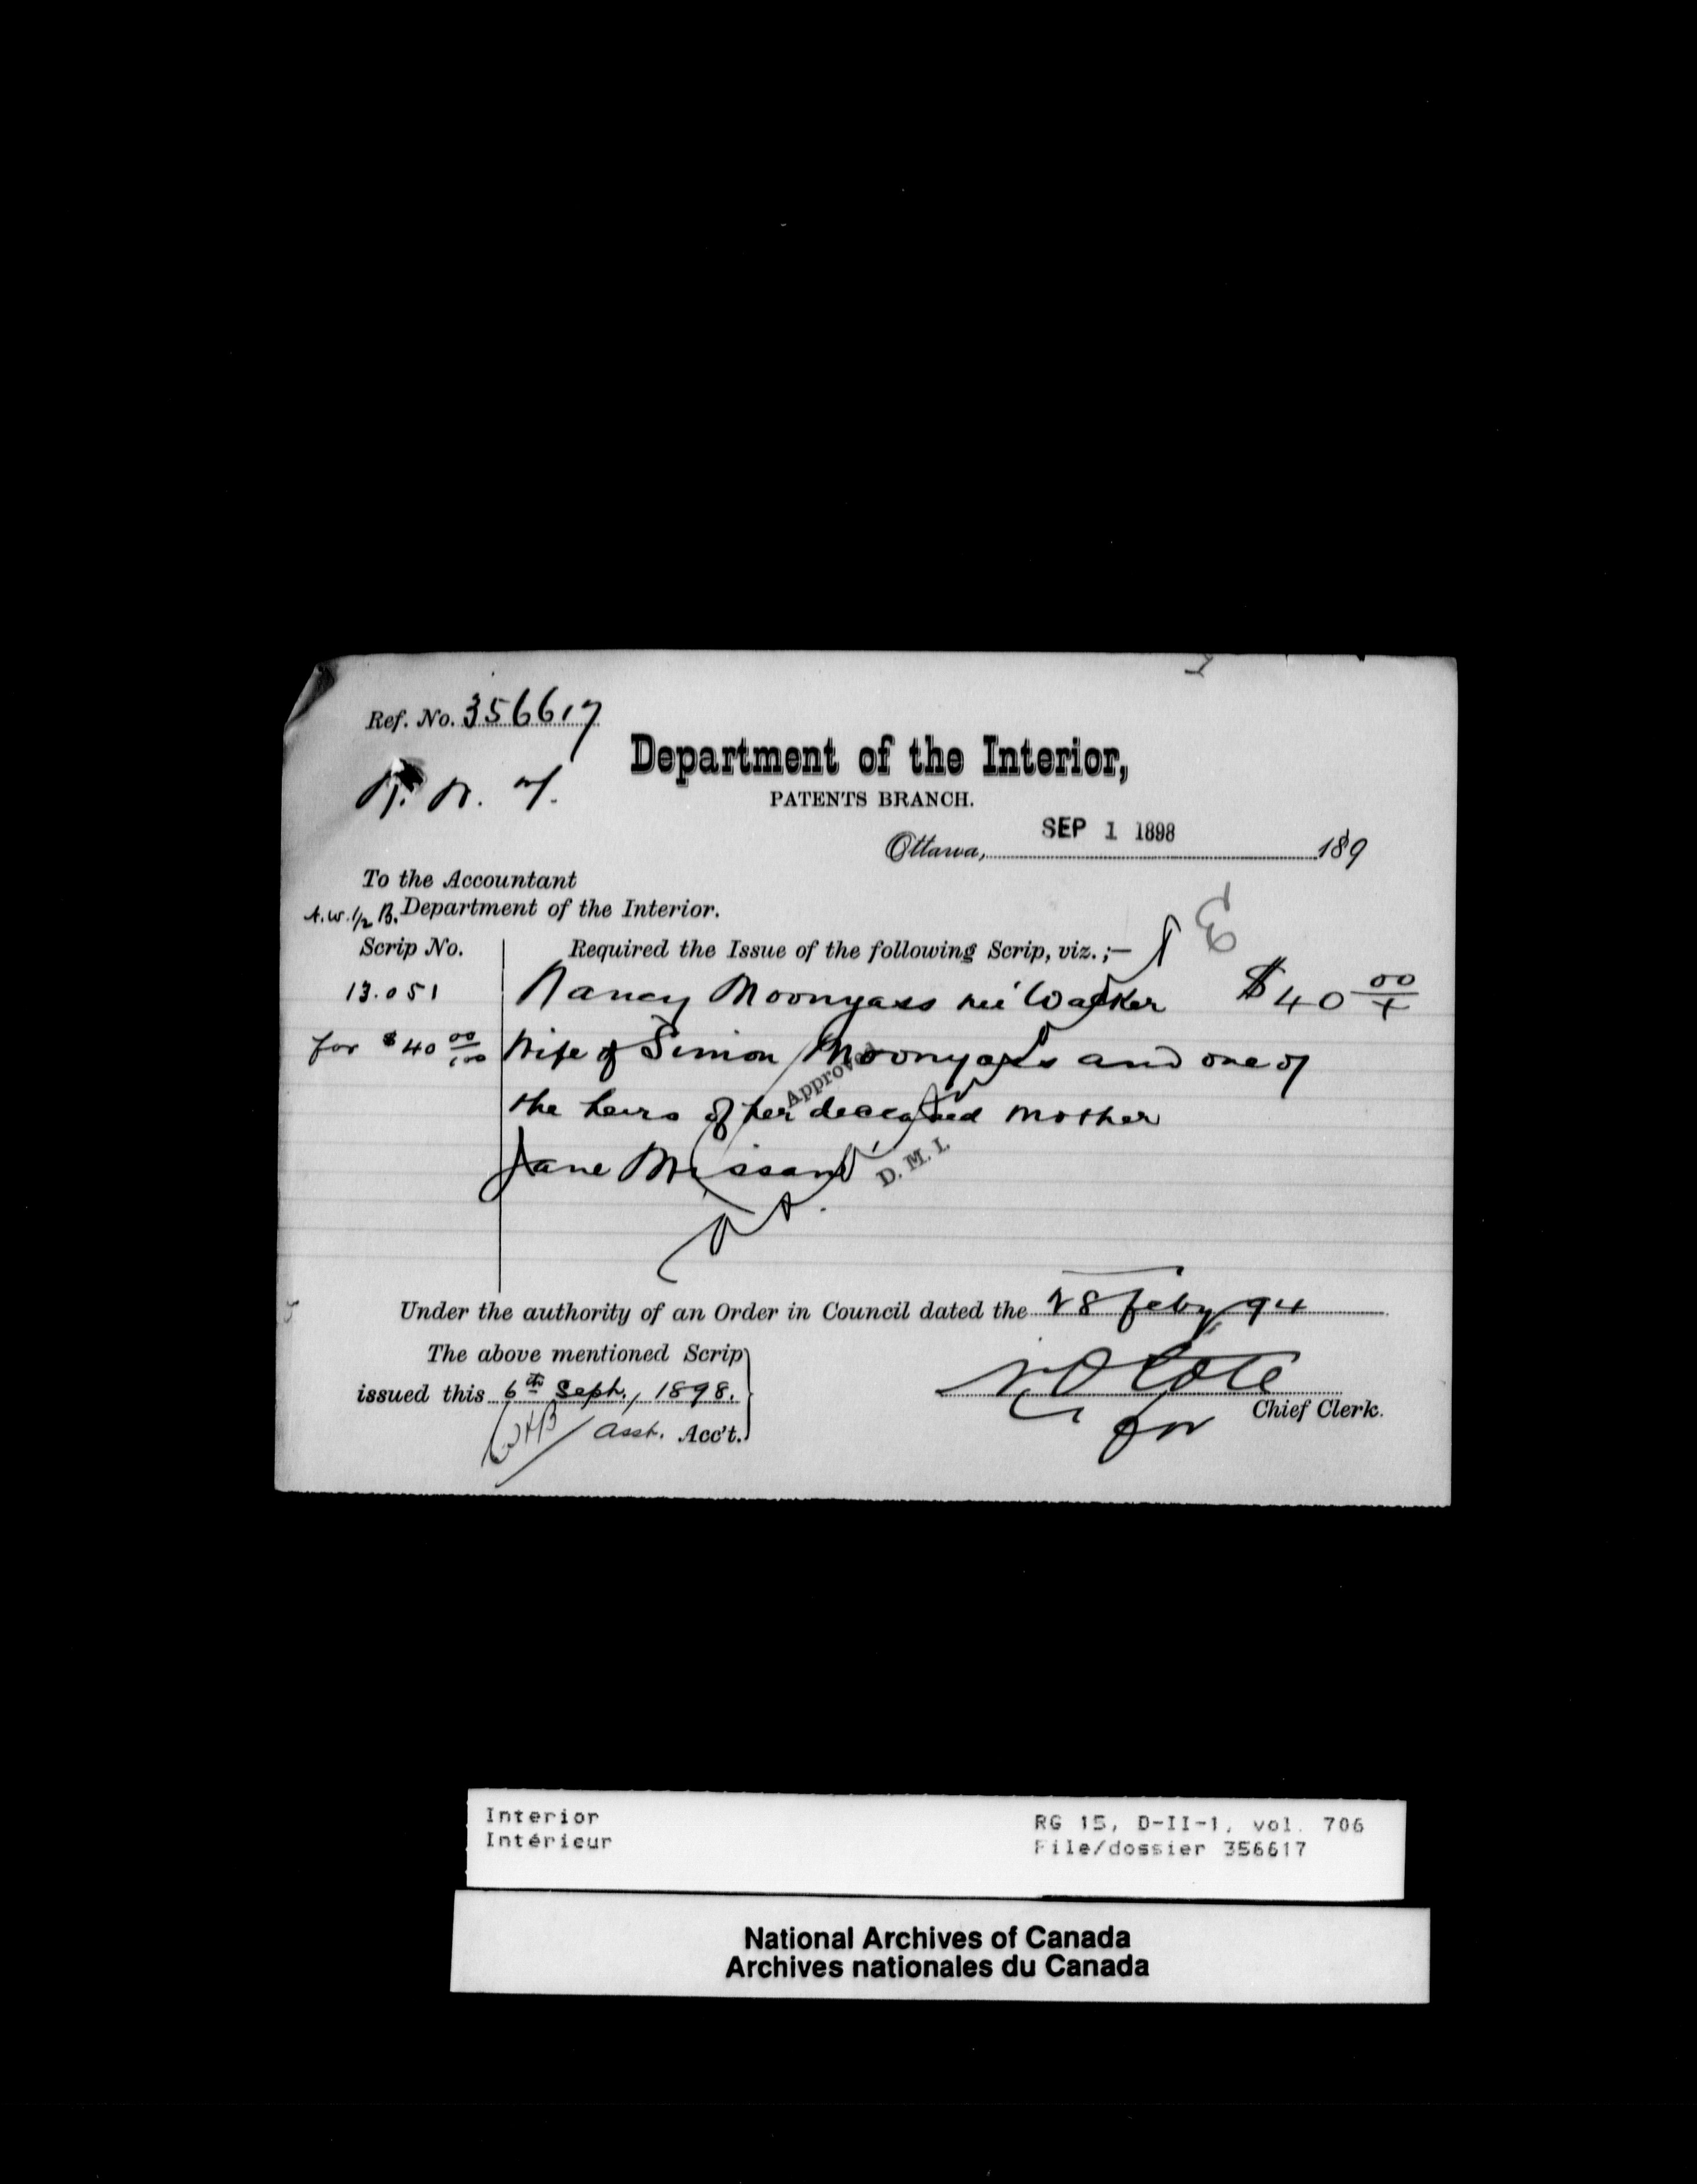 Ref. No. 356617
Department of the Interior,
PATENTS BRANCH.
Ottawa, SEP 1 1898 189
To the Accountant
A.W. 1/2 B. Department of the Interior.
Scrip No. Required the Issue of the following Scrip, viz. ;—
13.051 Nancy Moonyass neé Walker $40 00/x
for $40 00/100 Wife of Simon Moonyass and one of
Approved
the heirs of her deceased mother
Jane Missand
D. M. I.
Under the authority of an Order in Council dated the 28 Feby 94
The above mentioned Scrip
issued this 6th Sept., 1898.
N O Cote
for Chief Clerk.
WHB Asst. Acc't.
Interior
Intérieur
RG 15, D-II-1, vol. 706
File/dossier 356617
National Archives of Canada
Archives nationales du Canada